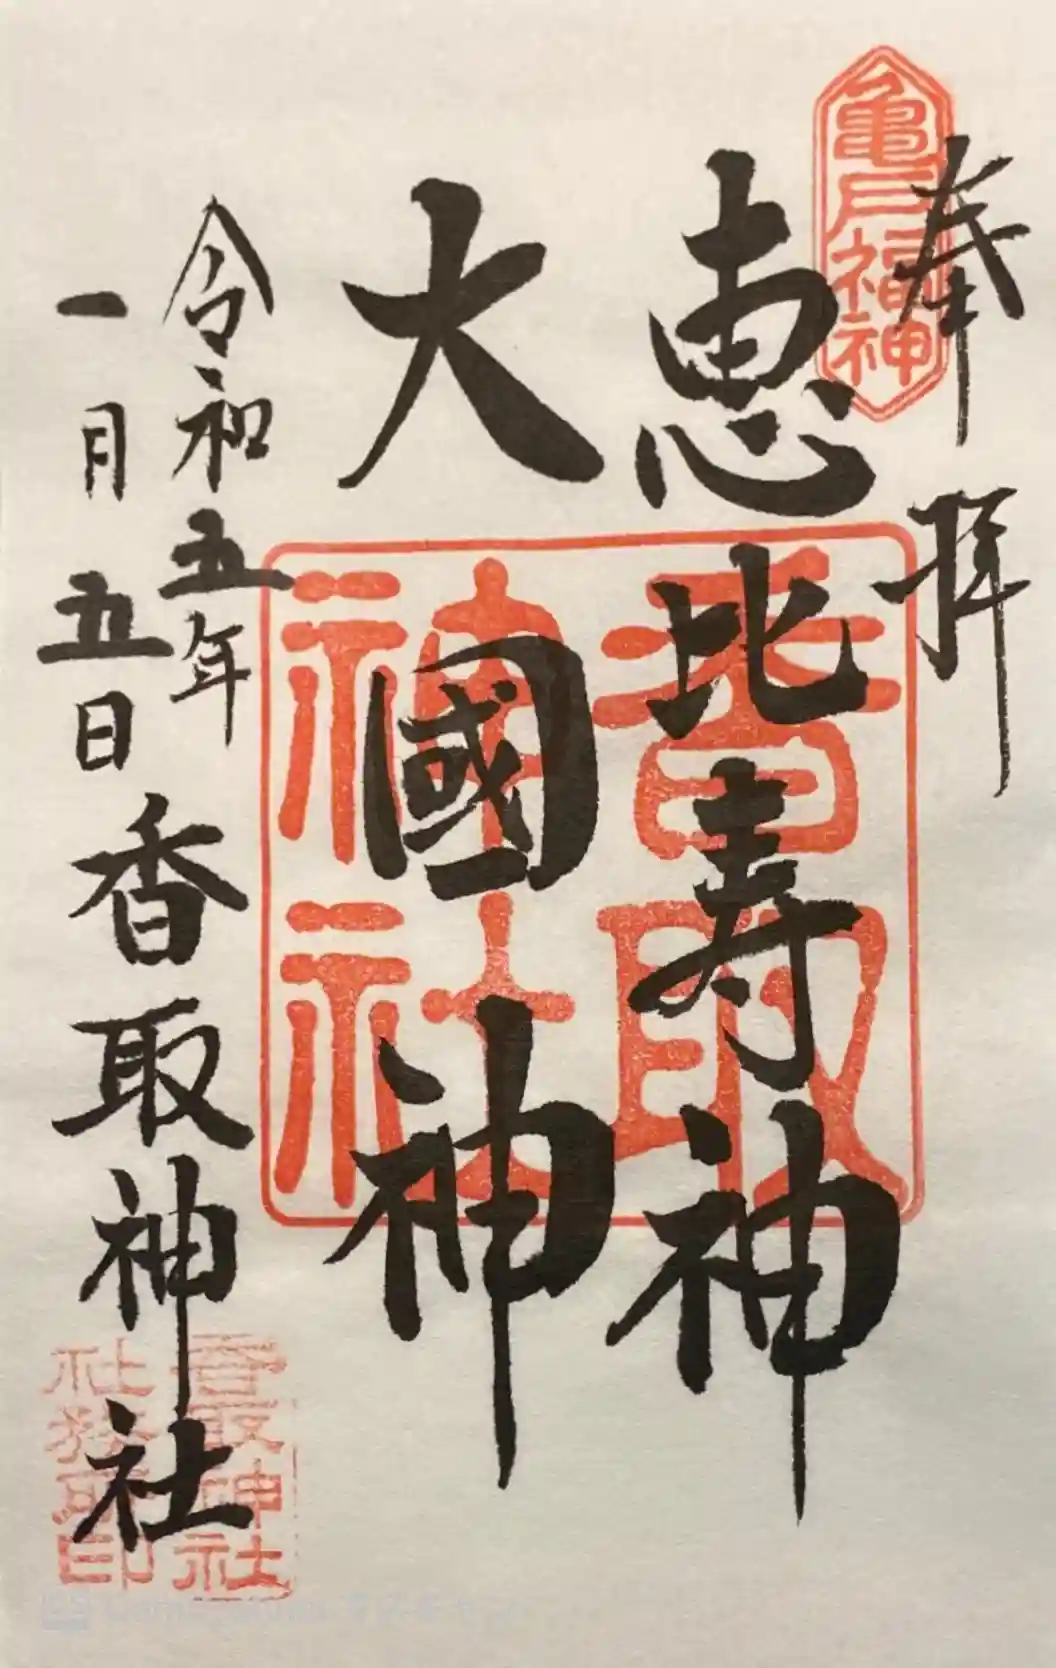 奉拝
亀戸福神
恵比寿神
大國神
香取
神社
令和五年
一月五日
香取神社
香取神社
社務所印